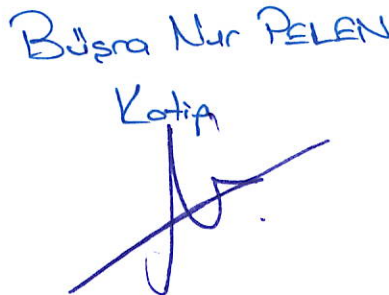 Büşra Nur PELEN
Katip